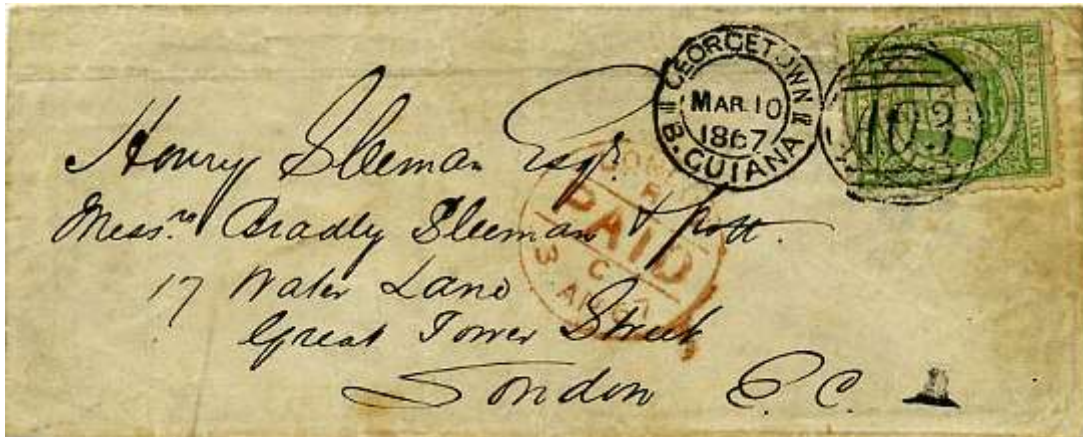 GEORGETOWN
MAR 10
1867
B. GUIANA
A03
Henry Sleeman Esqr.
Messrs. Bradly Sleeman & Spott.
17 Water Lane
Great Tower Street
London E.C.
LONDON
PAID
C
3 AP 67